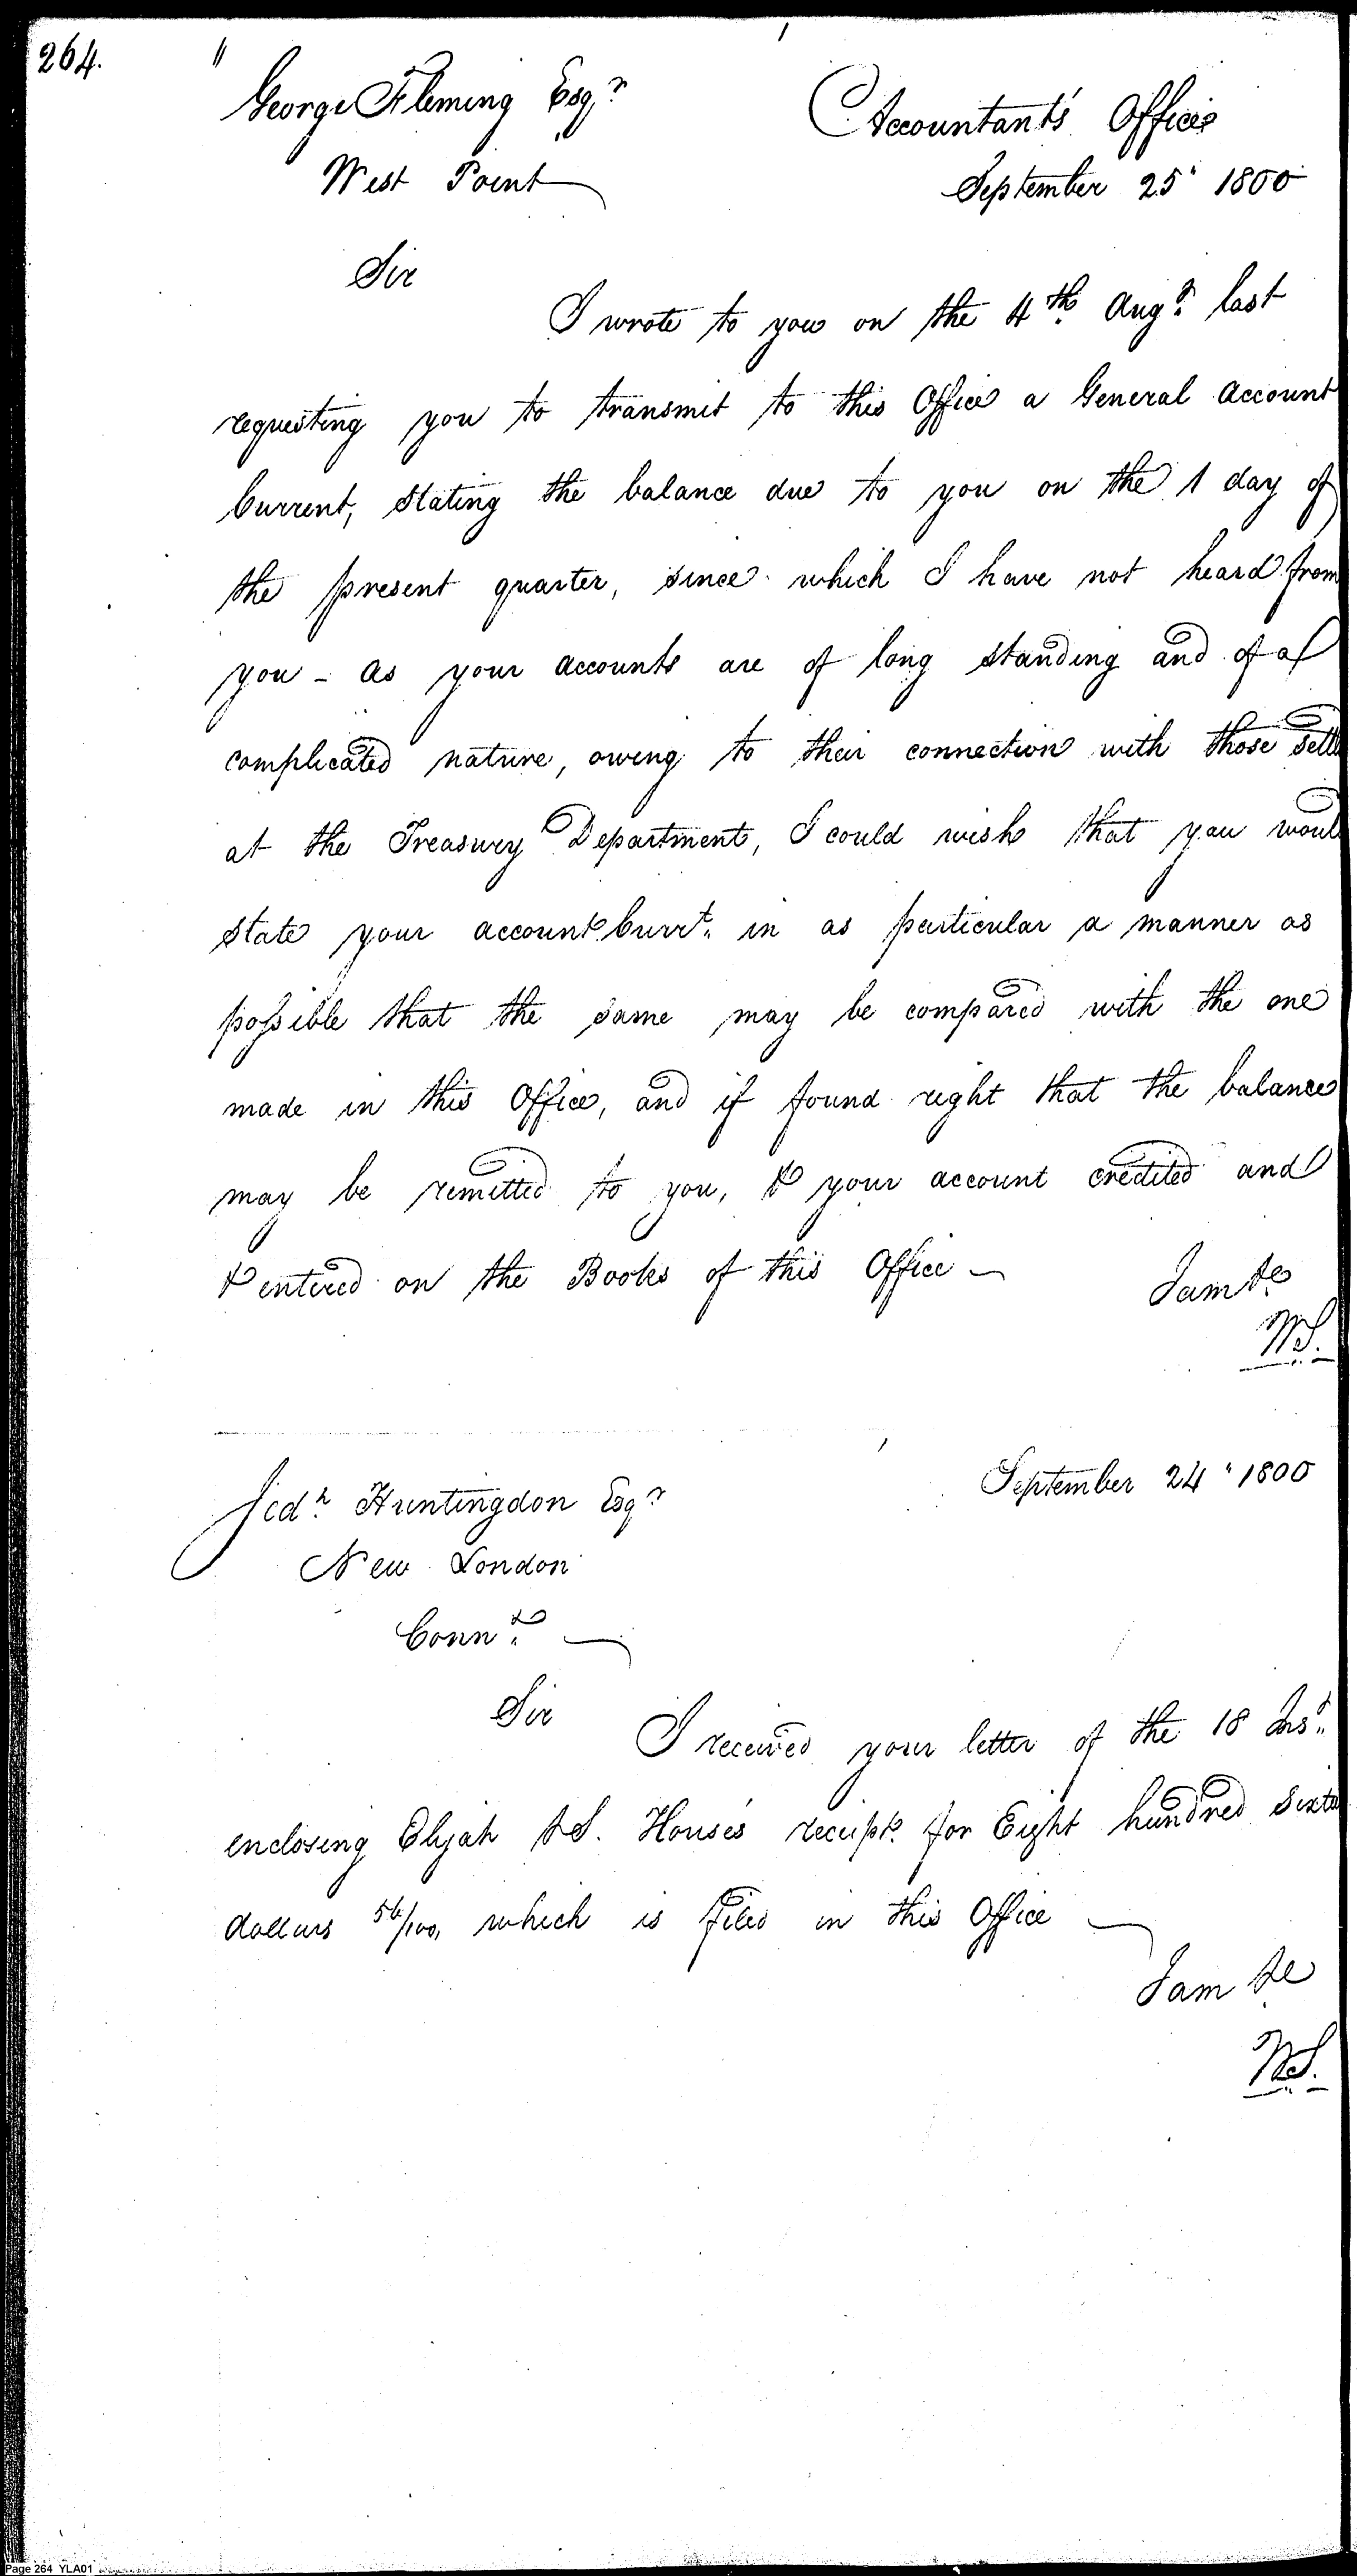 264.
George Fleming Esqr
West Point
Accountant's Office
September 25 1800
Sir
I wrote to you on the 4th Augt last
requesting you to transmit to this Office a General Account
Current, stating the balance due to you on the 1 day of
the present quarter, since which I have not heard from
you - as your accounts are of long standing and of a
complicated nature, owing to their connection with those settl
at the Treasury Department, I could wish that you woul
state your account Currt. in as particular a manner as
possible that the same may be compared with the one
made in this Office, and if found right that the balance
may be remitted to you, & your account credited and
& entered on the Books of this Office
I am &c
WS.
September 24 1800
Jedh Huntingdon Esqr
New London
Connt
Sir
I received your letter of the 18 Inst.
enclosing Elijah & S. House's receipt for Eight hundred Sixty
dollars 56/100, which is filed in this Office
I am &c
WS.
Page 264 YLA01